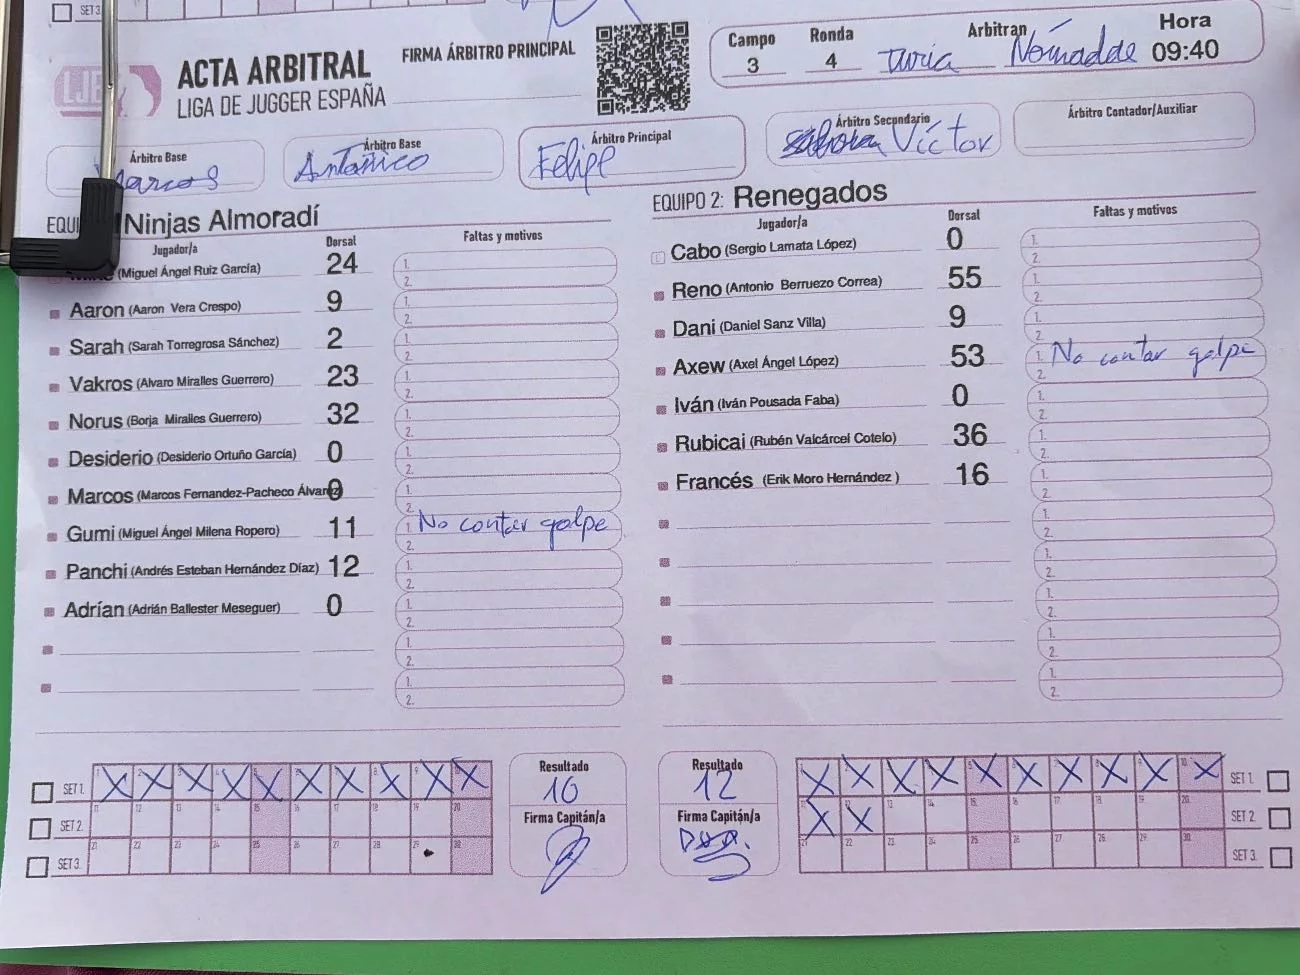 SET 3.
LJE
ACTA ARBITRAL
LIGA DE JUGGER ESPAÑA
FIRMA ÁRBITRO PRINCIPAL
Campo
3
Ronda
4
Arbitran
Turia Nómadde
Hora
09:40
Árbitro Base
Marcos
Árbitro Base
Antoñico
Árbitro Principal
Felipe
Árbitro Secundario
Víctor
Árbitro Contador/Auxiliar
Ninjas Almoradí
Jugador/a Dorsal Faltas y motivos
(Miguel Ángel Ruiz García) 24 1. 2.
Aaron (Aaron Vera Crespo) 9 1. 2.
Sarah (Sarah Torregrosa Sánchez) 2 1. 2.
Vakros (Alvaro Miralles Guerrero) 23 1. 2.
Norus (Borja Miralles Guerrero) 32 1. 2.
Desiderio (Desiderio Ortuño García) 0 1. 2.
Marcos (Marcos Fernandez-Pacheco Álvarez) 0 1. 2.
Gumi (Miguel Ángel Milena Ropero) 11 1. No contar golpe 2.
Panchi (Andrés Esteban Hernández Díaz) 12 1. 2.
Adrían (Adrián Ballester Meseguer) 0 1. 2.
1. 2.
1. 2.
EQUIPO 2: Renegados
Jugador/a Dorsal Faltas y motivos
Cabo (Sergio Lamata López) 0 1. 2.
Reno (Antonio Berruezo Correa) 55 1. 2.
Dani (Daniel Sanz Villa) 9 1. 2.
Axew (Axel Ángel López) 53 1. No contar golpe 2.
Iván (Iván Pousada Faba) 0 1. 2.
Rubicai (Rubén Valcárcel Cotelo) 36 1. 2.
Francés (Erik Moro Hernández ) 16 1. 2.
1. 2.
1. 2.
1. 2.
1. 2.
1. 2.
SET 1. X X X X X X X X X X
SET 2. 11 12 13 14 15 16 17 18 19 20
SET 3. 21 22 23 24 25 26 27 28 29 30
Resultado
10
Firma Capitán/a
Resultado
12
Firma Capitán/a
X X X X X X X X X X SET 1.
X X 13 14 15 16 17 18 19 20 SET 2.
21 22 23 24 25 26 27 28 29 30 SET 3.